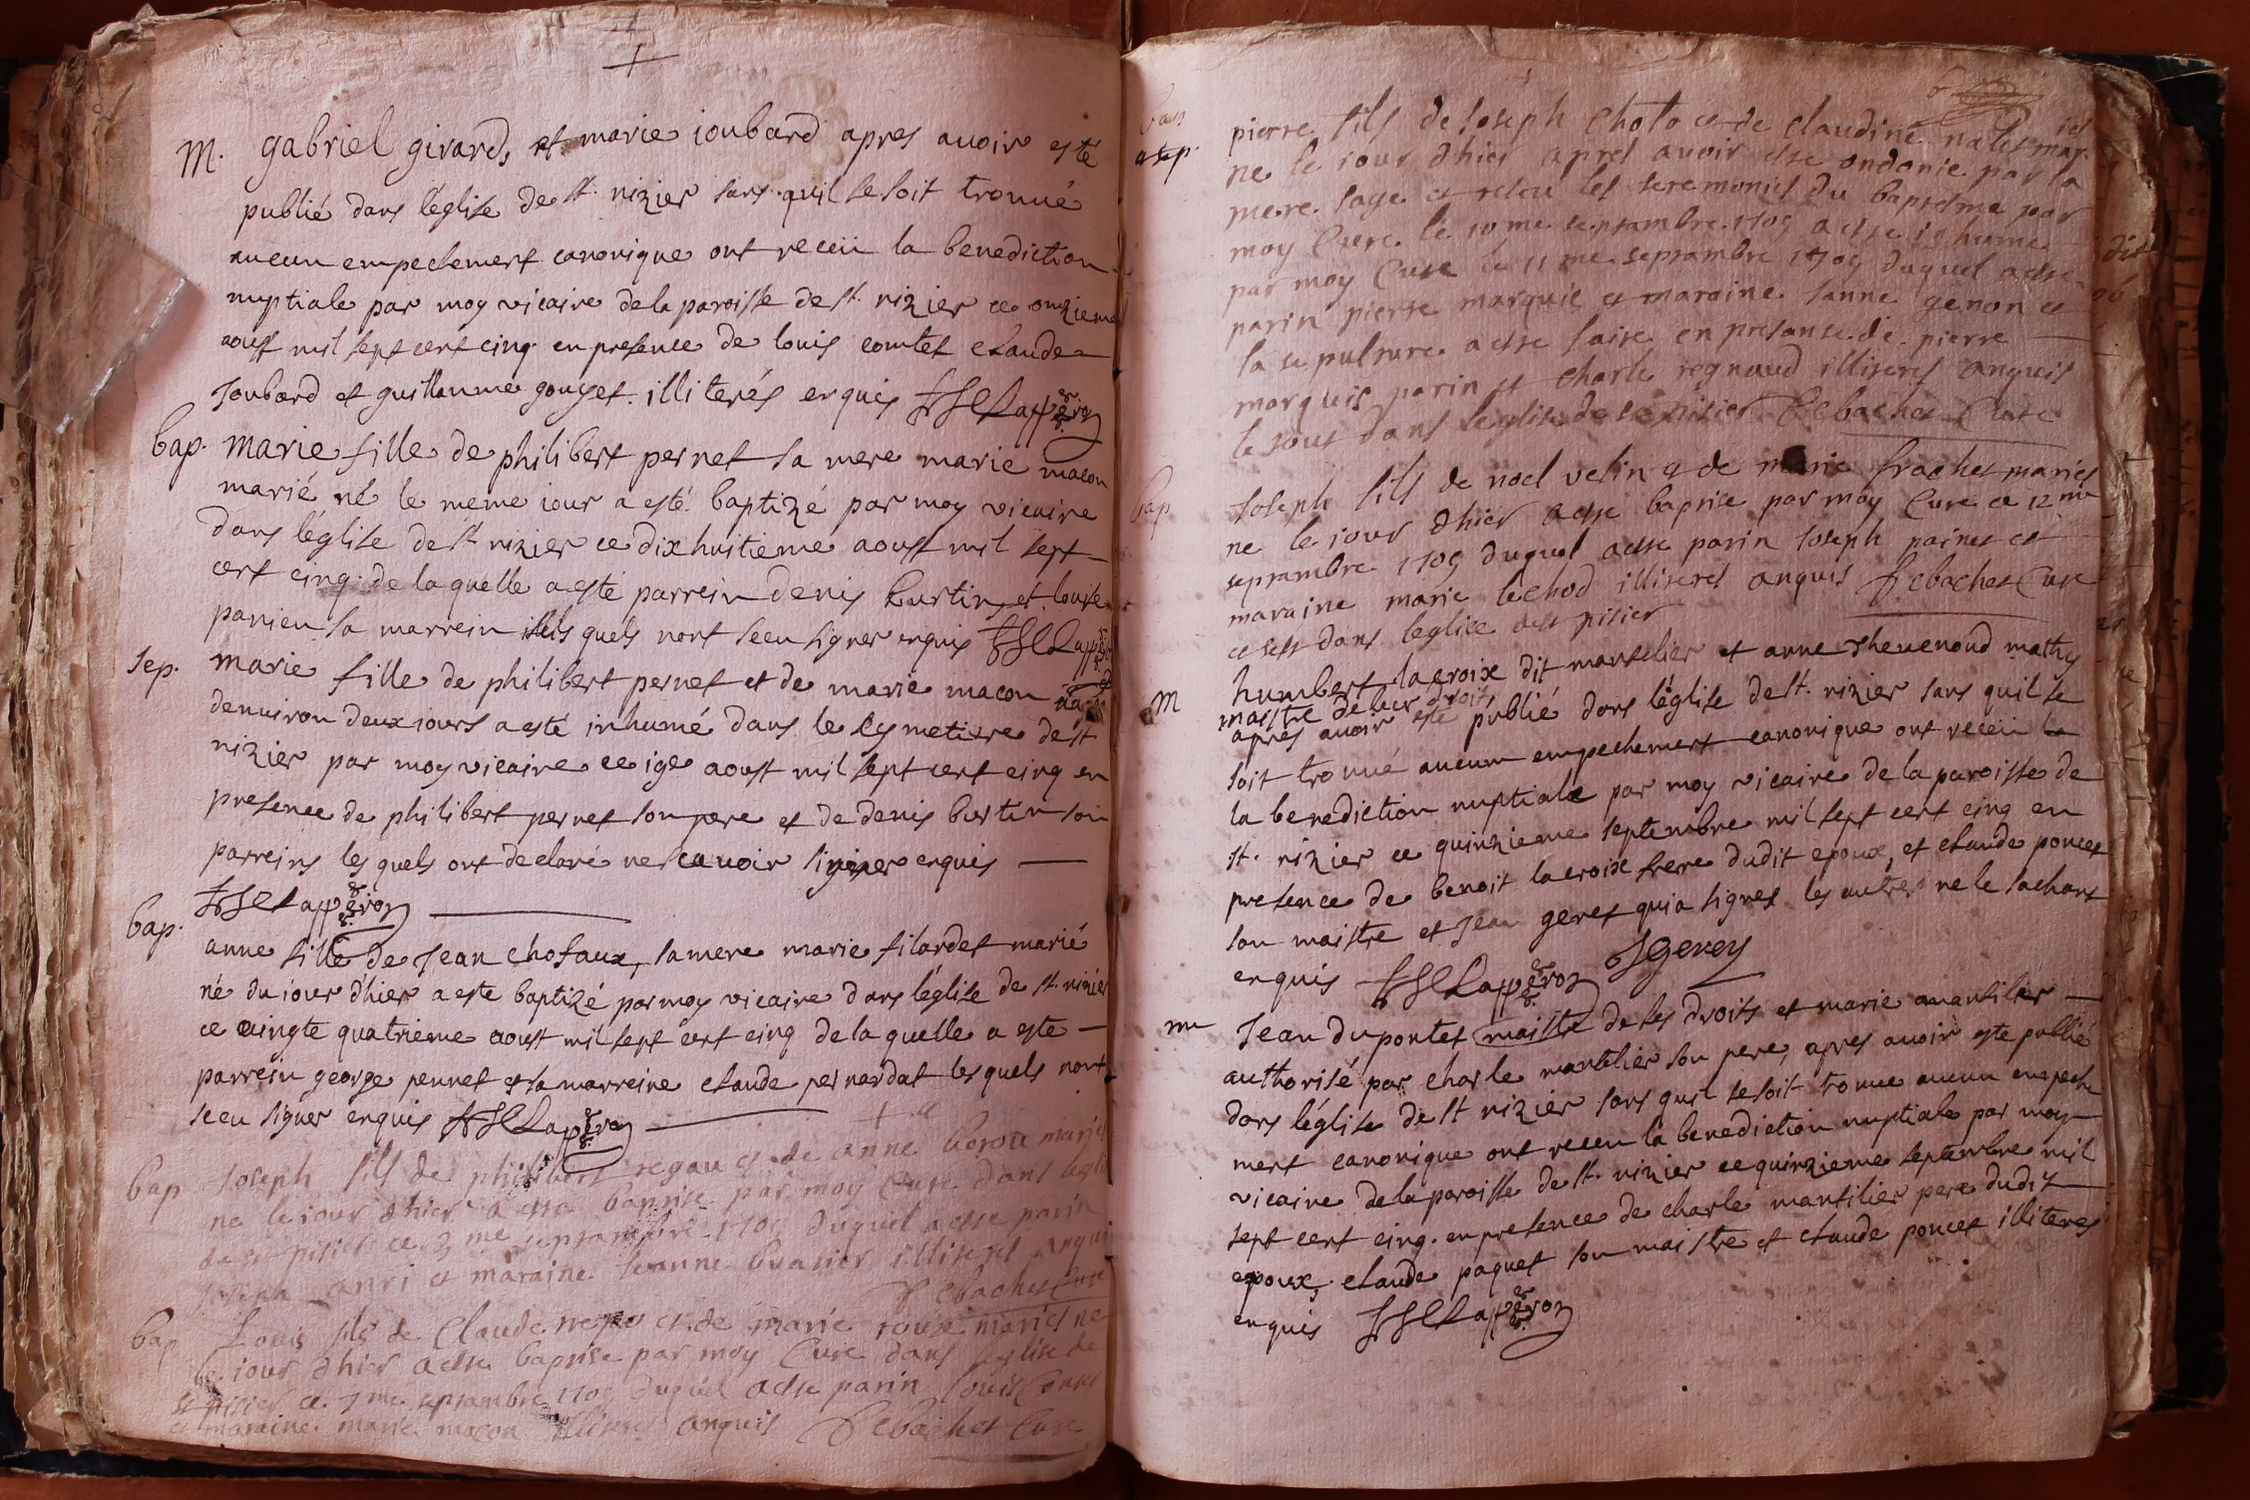 M. gabriel girard, et marie ioubard apres auoir esté
publié dans l'églile de st. nizier sans quil se soit trouué
aucun empechement canonique ont receü la benediction
nuptiale par moy vicaire de la paroisse de st. nizier ce onzieme
aoust mil sept cent cinq en presence de louis comtet claude
Joubard et guillaume gouget illiterés enquis
bap. marie fille de philibert pernet sa mere marie macon
marié né le meme iour a esté baptizé par moy vicaire
dans l'églile de st nizier ce dix huitieme aoust mil sept
cent cinq de laquelle a esté parrein denis burtin et louise
panieu sa marrein lesquels nont sceu signer enquis
sep. marie fille de philibert pernet et de marie macon
denuiron deux iours a esté inhumé dans le cymetiere de st
nizier par moy vicaire ce 19e aoust mil sept cent cinq en
presence de philibert pernet son pere et de denis burtin son
parreins les quels ont declaré ne scauoir signer enquis
bap. anne fille de Jean chosaux, sa mere marie filardet marié
né du iour d'hier a este baptizé par moy vicaire dans l'églile de st. nizier
ce vingte quatrieme aoust mil sept cent cinq de la quelle a este
parrein george pennet et sa marreine claude pernardat lesquels nont
sceu signer enquis
bap Joseph fils de philibert regau et de anne mariés
ne le iour dhier a este baptise par moy Cure dans leglise
de st nisier ce 3 me septambre 1705 duquel a este parin
Joseph anri et maraine Jeanne illiteres anquis
Debachet Cure
bap Louis fils de Claude et de marie roux mariés ne
le iour dhier a este baptise par moy Cure dans leglise de
st nisier ce 7 me septambre 1705 duquel a este parin louis Contet
et maraine marie macon illiteres anquis Debachet Cure
6
pierre fils de Joseph Choto et de claudine mar
ne le iour dhier apres avoir este ondonie par la
mere sage et reseu les seremonies du baptesme par
moy Cure le 10 me septambre 1705 a este inhume
par moy Cure le 11 me septambre 1705 duquel a este
parin pierre marquis et maraine Janne genon et
la sepulture a este faite en presanse de pierre
marquis parin et charle regnaud illiteres anquis
le tout dans leglise de st nisier Debachet Cure
bap Joseph fils de noel velin et de marie frachet mariés
ne le iour dhier a este baptise par moy Cure ce 12 me
septambre 1705 duquel a este parin Joseph painet et
maraine marie lechod illiteres anquis Debachet Cure
ce fest dans leglise de st nisier
M humbert lacroix dit mantelier et anne theuenoud
maistre de leur droits
apres auoir esté publié dans l'églile de st. nizier sans quil se
soit trouué aucun empechement canonique ont receü la
la benediction nuptiale par moy vicaire de la paroisse de
st. nizier ce quinzieme septembre mil sept cent cinq en
presence de benoit lacroix frere dudit epoux, et claude poncet
son maistre et Jean geret qui a signes les autres ne le sachant
enquis JGerey
m Jean du pontet maistre de ses droits et marie mantilier
authorisé par charle mantelier son pere, apres auoir este publié
dans l'églile de st nizier sans quil se soit trouue aucun empeche
ment canonique ont receu la benediction nuptiale par moy
vicaire de la paroisse de st. nizier ce quinzieme septembre mil
sept cent cinq en presence de charle mantilier pere dudit
epoux, claude paquet son maistre et claude poncet illiteres
enquis